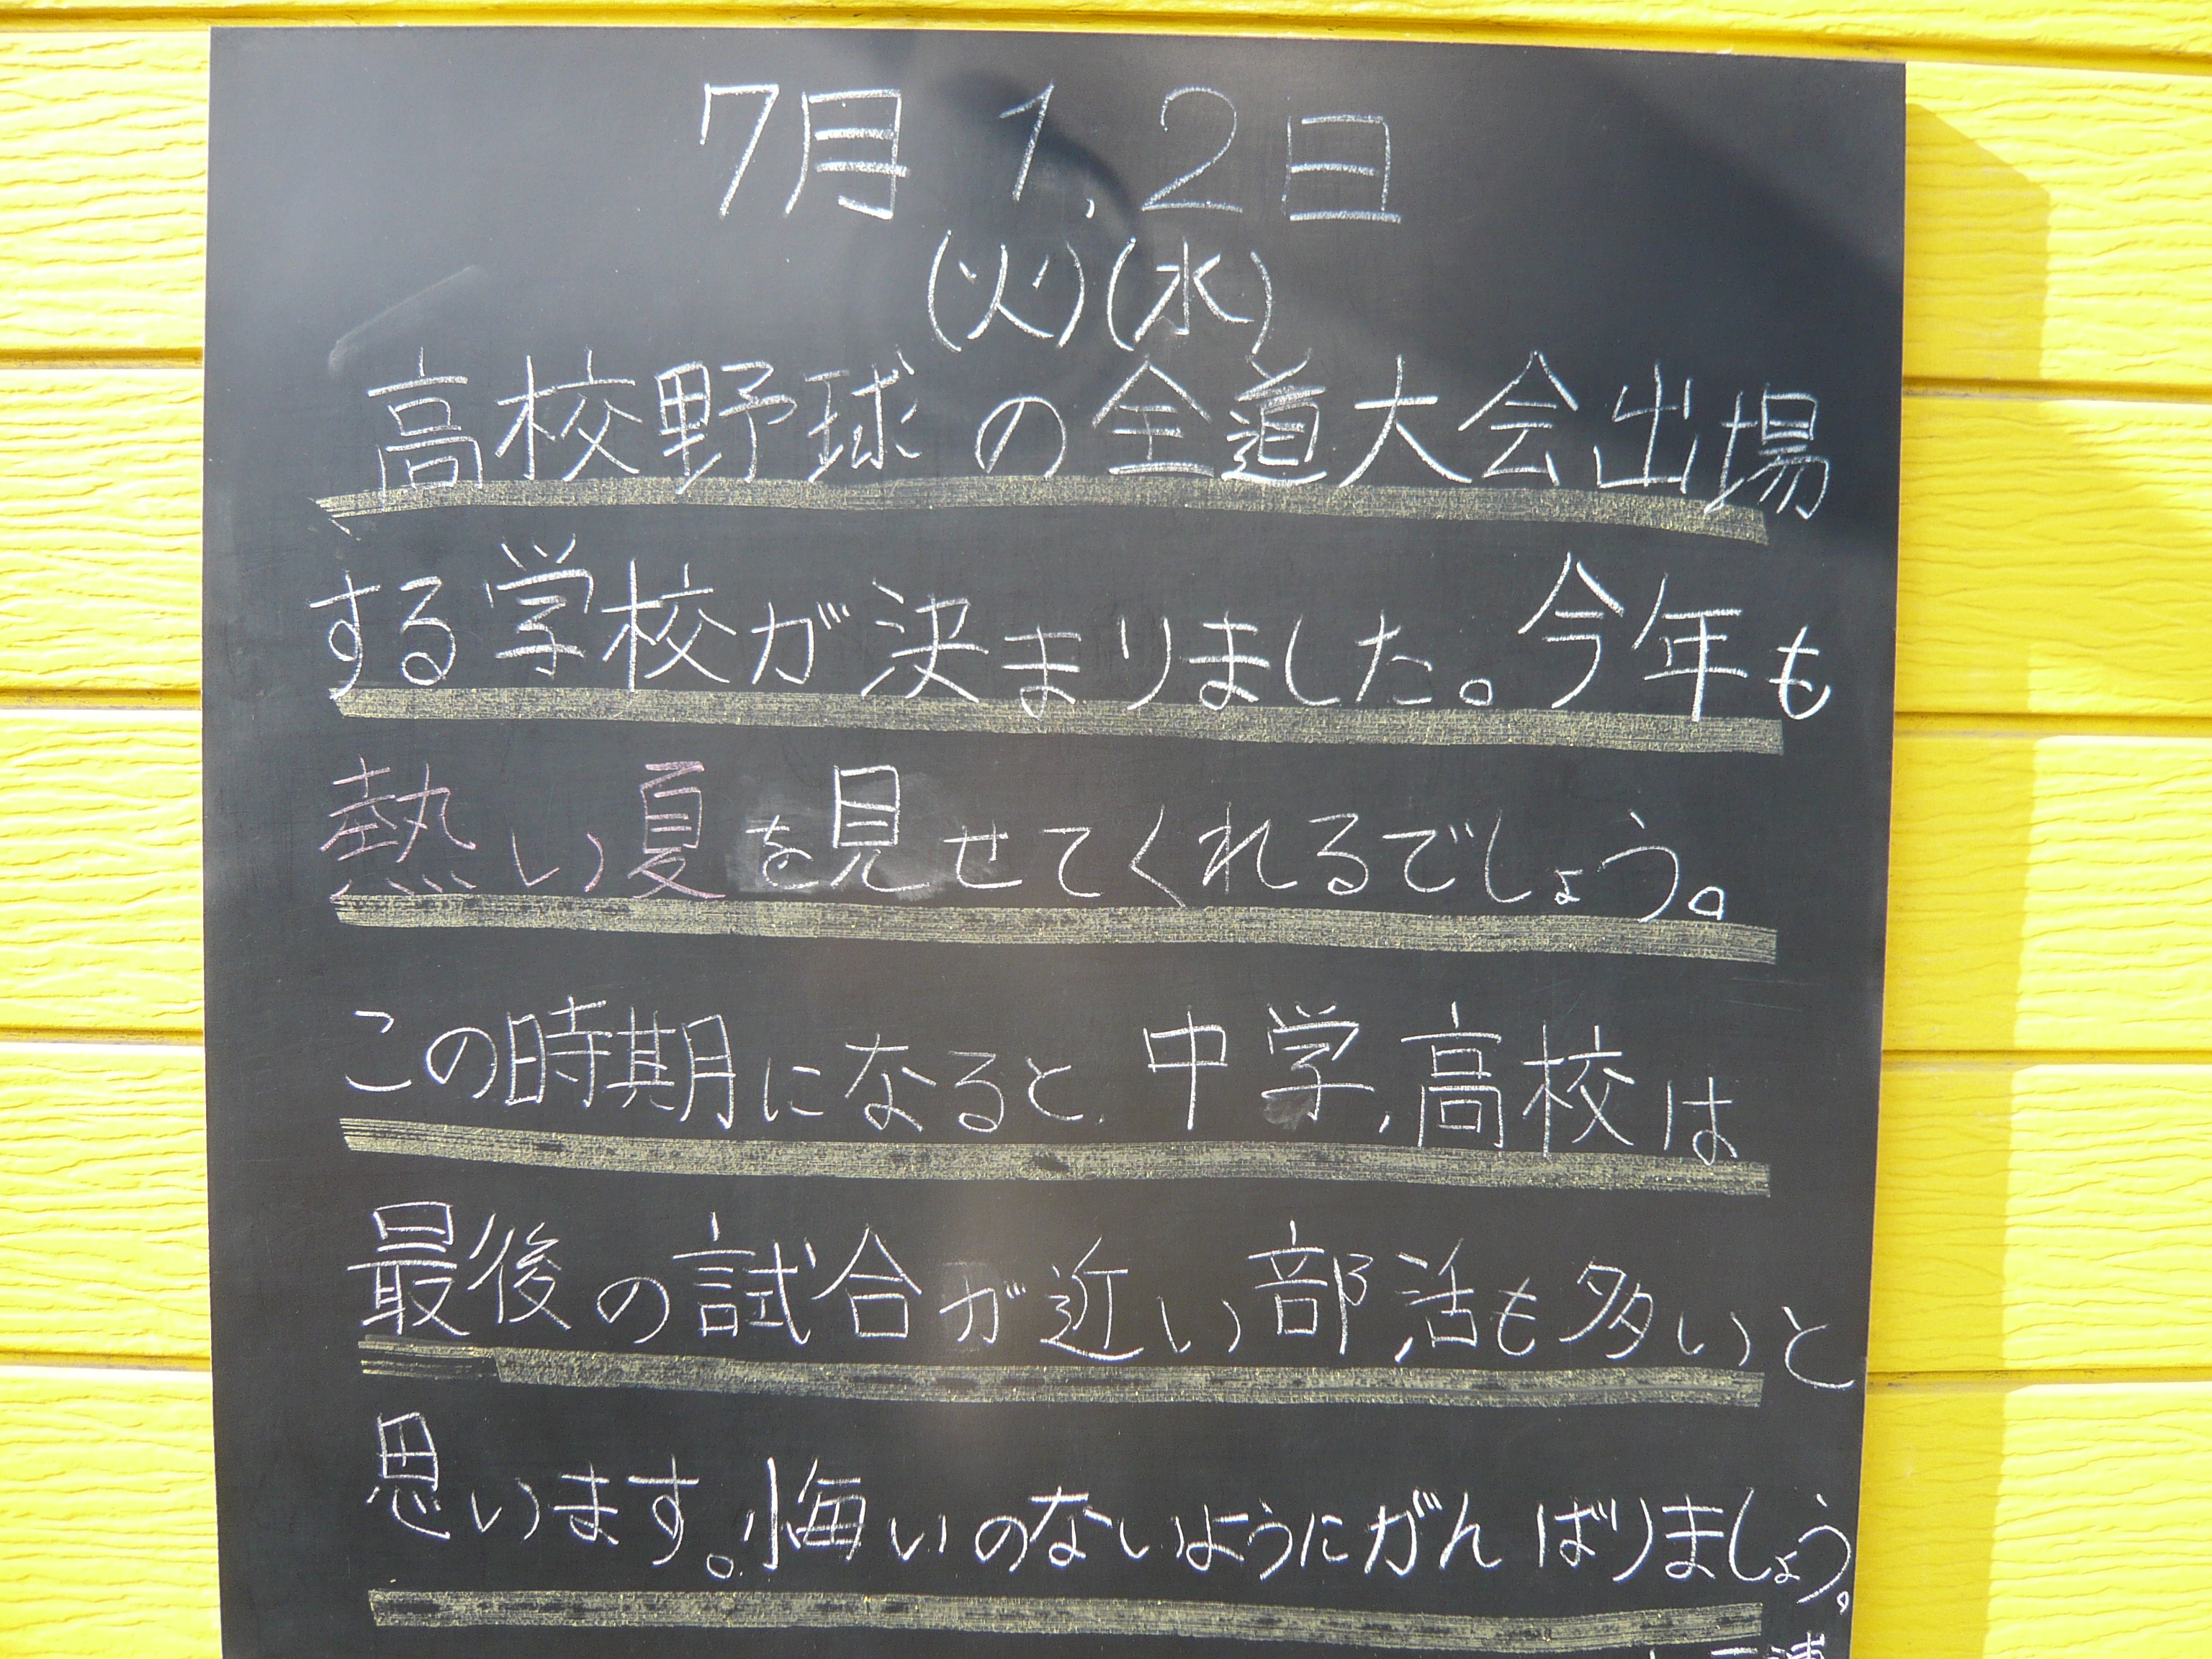 7月1、2日
(火)(水)
高校野球の全道大会出場
する学校が決まりました。今年も
熱い夏を見せてくれるでしょう。
この時期になると、中学、高校は
最後の試合が近い部活も多いと
思います。悔いのないようにがんばりましょう。